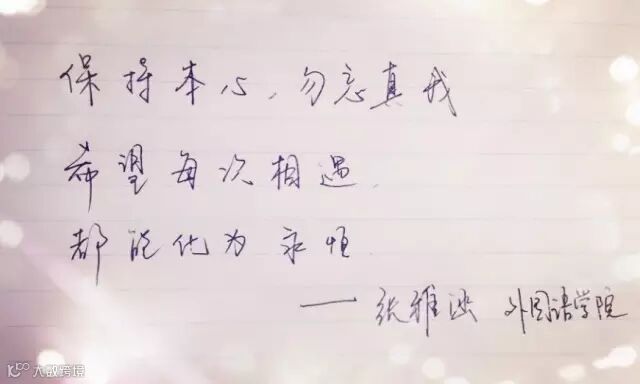 保持本心,勿忘真我
希望每次相遇,
都能化为永恒.
——张雅涵 外国语学院
大数跨境